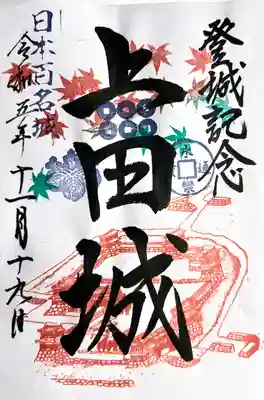 登城記念
上田城
日本百名城
令和五年十一月十九日
永樂通寳